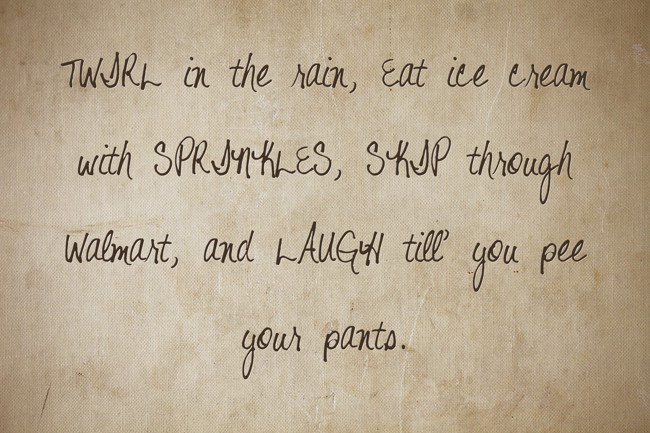 TWIRL in the rain, Eat ice cream
with SPRINKLES, SKIP through
Walmart, and LAUGH till' you pee
your pants.